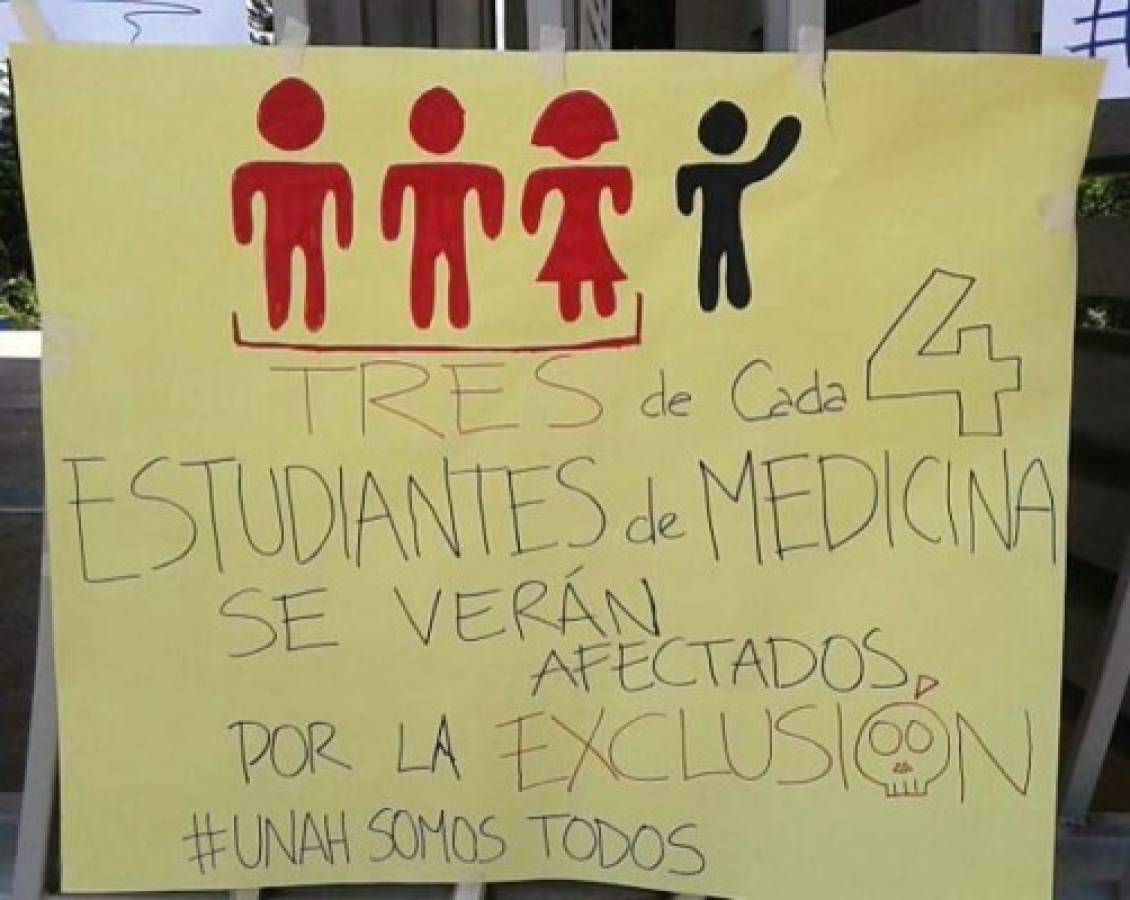 TRES de Cada 4
ESTUDIANTES de MEDICINA
SE VERÁN
AFECTADOS
POR LA EXCLUSIÓN
#UNAH SOMOS TODOS
#